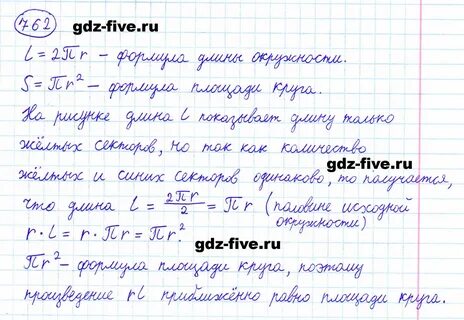 762 gdz-five.ru
l = 2πr – формула длины окружности.
S = πr² – формула площади круга.
gdz-five.ru
На рисунке длина l показывает длину только
жёлтых секторов, но так как количество
gdz-five.ru
жёлтых и синих секторов одинаково, то получается,
что длина l = 2πr/2 = πr (половине исходной
окружности)
r · l = r · πr = πr².
gdz-five.ru
πr² – формула площади круга, поэтому
произведение rl приближённо равно площади круга.